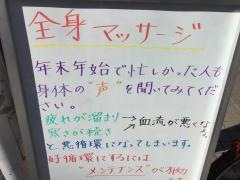 全身マッサージ
年末年始で忙しかった人も
身体の"声"を聞いてみてくだ
さい。
疲れが溜まり
寒さが続き
→血流が悪くな
と、悪循環になってしまいます。
好循環にするには
"メンテナンス"が